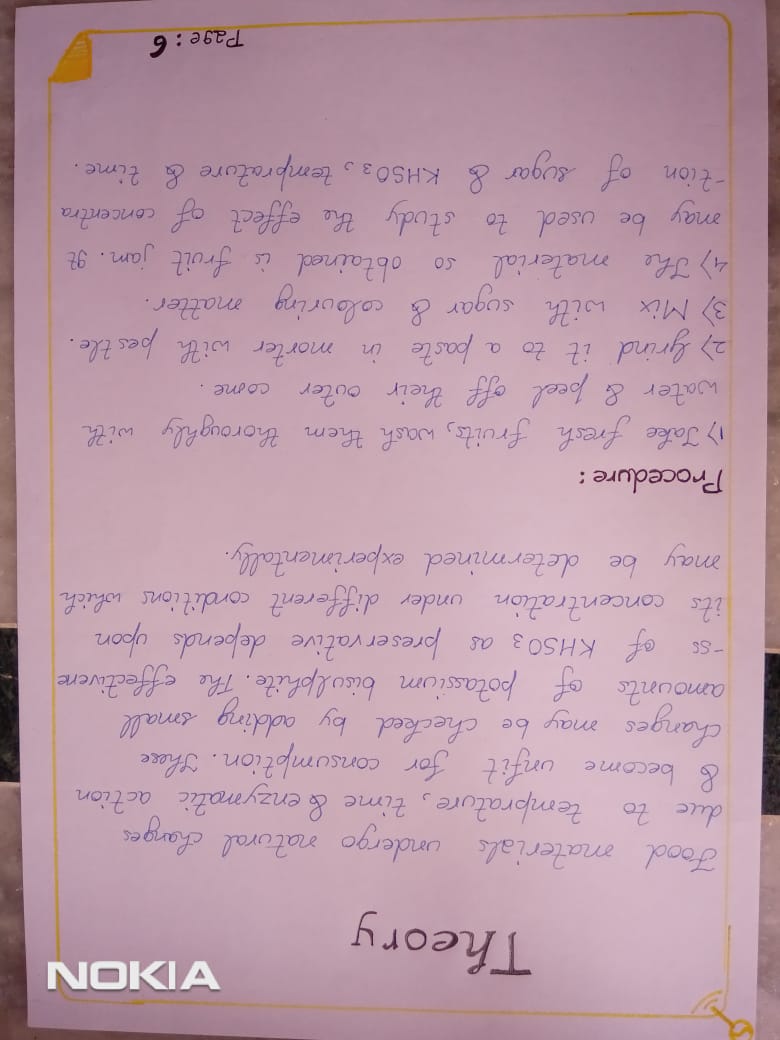 Theory
Food materials undergo natural changes
due to temprature, time & enzymatic action
& become unfit for consumption. These
changes may be checked by adding small
amounts of potassium bisulphite. The effectivene
-ss of KHSO3 as preservative depends upon
its concentration under different conditions which
may be determined experimentally.
Procedure:
1) Take fresh fruits, wash them thoroughly with
water & peel off their outer come.
2) Grind it to a paste in morter with pestle.
3) Mix with sugar & colouring matter.
4) The material so obtained is fruit jam. It
may be used to study the effect of concentra
-tion of sugar & KHSO3, temprature & time.
Page: 6
NOKIA